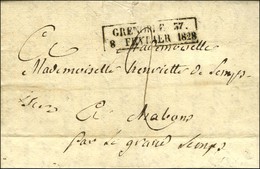 GRENOBLE 37.
8 FEVRIER 1828
A
Mademoiselle
Mademoiselle henriette de Semps
A
par Le grand Lemps